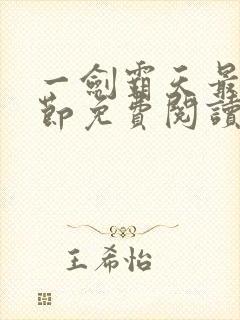 一劍霸天最
節免費閱讀
王希怡